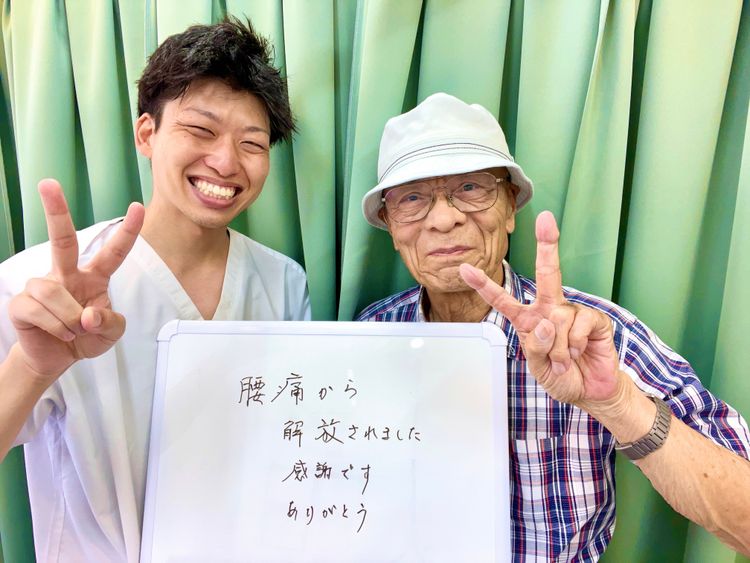 腰痛から
解放されました
感謝です
ありがとう